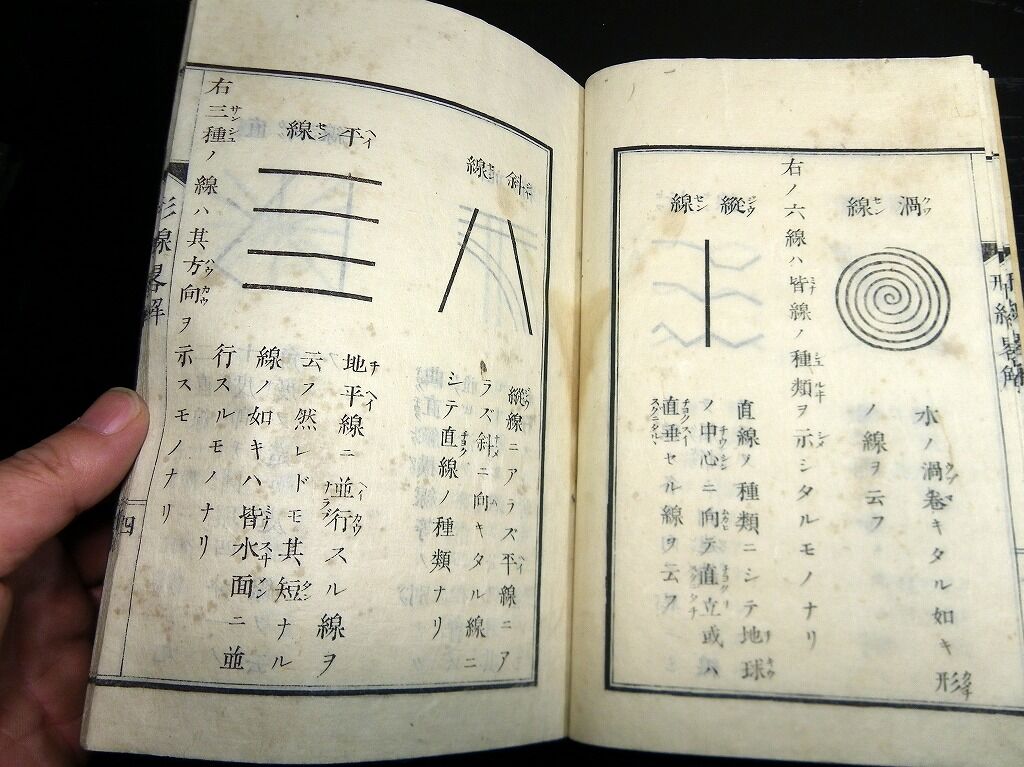 形線畧解
渦線
水ノ渦卷キタル如キ形
ノ線ヲ云フ
右ノ六線ハ皆線ノ種類ヲ示シタルモノナリ
縱線
直線ノ種類ニシテ地球
ノ中心ニ向テ直立或ハ
直垂セル線ヲ云フ
斜線
縱線ニアラズ平線ニア
ラズ斜ニ向キタル線ニ
シテ直線ノ種類ナリ
平線
地平線ニ並行スル線ヲ
云フ然レドモ其短ナル
線ノ如キハ皆水面ニ並
行スルモノナリ
右三種ノ線ハ其方向ヲ
示スモノナリ
形線畧解
四